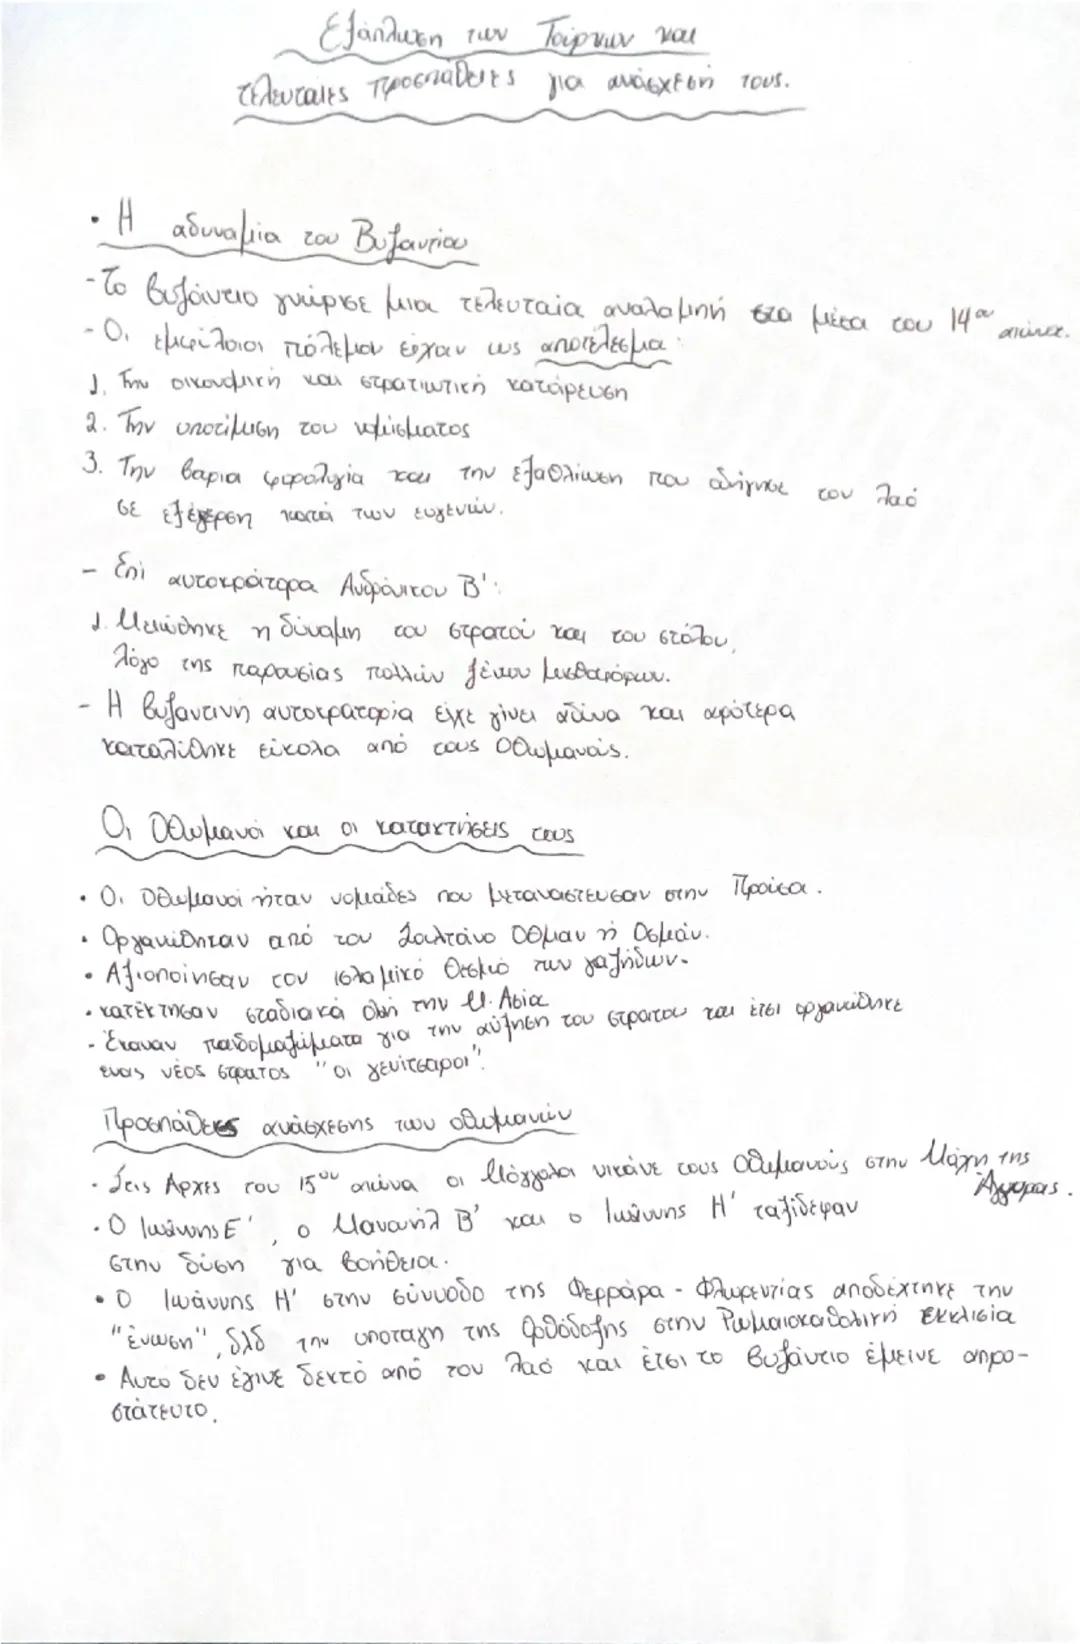 Εξάπλωση των Τούρκων και
τελευταίες προσπάθειες για ανάσχεσή τους.
• Η αδυναμία του Βυζαντίου
- Το Βυζάντιο γνώρισε μια τελευταία αναλαμπή στα μέσα του 14ου αιώνα.
- Οι εμφύλιοι πόλεμοι είχαν ως αποτέλεσμα:
1. Την οικονομική και στρατιωτική κατάρευση
2. Την υποτίμιση του νομίσματος
3. Την βαρια φορολογία και την εξαθλίωση που οδήγησε τον λαό
σε εξέγερση κατά των ευγενών.
- Επί αυτοκράτορα Ανδρόνικου Β':
1. Μειώθηκε η δύναμη του στρατού και του στόλου,
λόγο της παρουσίας πολλών ξένων μισθοφόρων.
- Η βυζαντινή αυτοκρατορία είχε γίνει αδύνα και αρότερα
καταλύθηκε εύκολα από τους Οθωμανούς.
Οι Οθωμανοί και οι κατακτήσεις τους
• Οι Οθωμανοί ήταν νομάδες που μεταναστευσαν στην Προύσα.
• Οργανώθηκαν από τον Σουλτάνο Οθμαν ή Οσμάν.
• Αξιοποίησαν τον ισλαμικό θεσμό των γαζήδων.
• κατέκτησαν σταδιακά όλη την Μ. Ασία
- Έκαναν παιδομαζώματα για την αύξηση του στρατου και έτσι οργανώθηκε
ενας νέος στρατος "οι γενίτσαροι".
Προσπάθειες ανάσχεσης των οθωμανών
• Στις Αρχες του 15ου αιώνα οι Μόγγολοι νικάνε τους Οθωμανούς στην Μάχη της
Άγκυρας.
• Ο Ιωάννης Ε', ο Μανουήλ Β' και ο Ιωάννης Η' ταξίδεψαν
στην δύση για βοήθεια.
• Ο Ιωάννης Η' στην σύνοδο της Φερράρα - Φλωρεντίας αποδέχτηκε την
"ένωση", δλδ την υποταγη της Ορθόδοξης στην Ρωμαιοκαθολική Εκκλισία
• Αυτο δεν έγινε δεκτό από τον λαό και έτσι το Βυζάντιο έμεινε απρο-
στάτευτο.